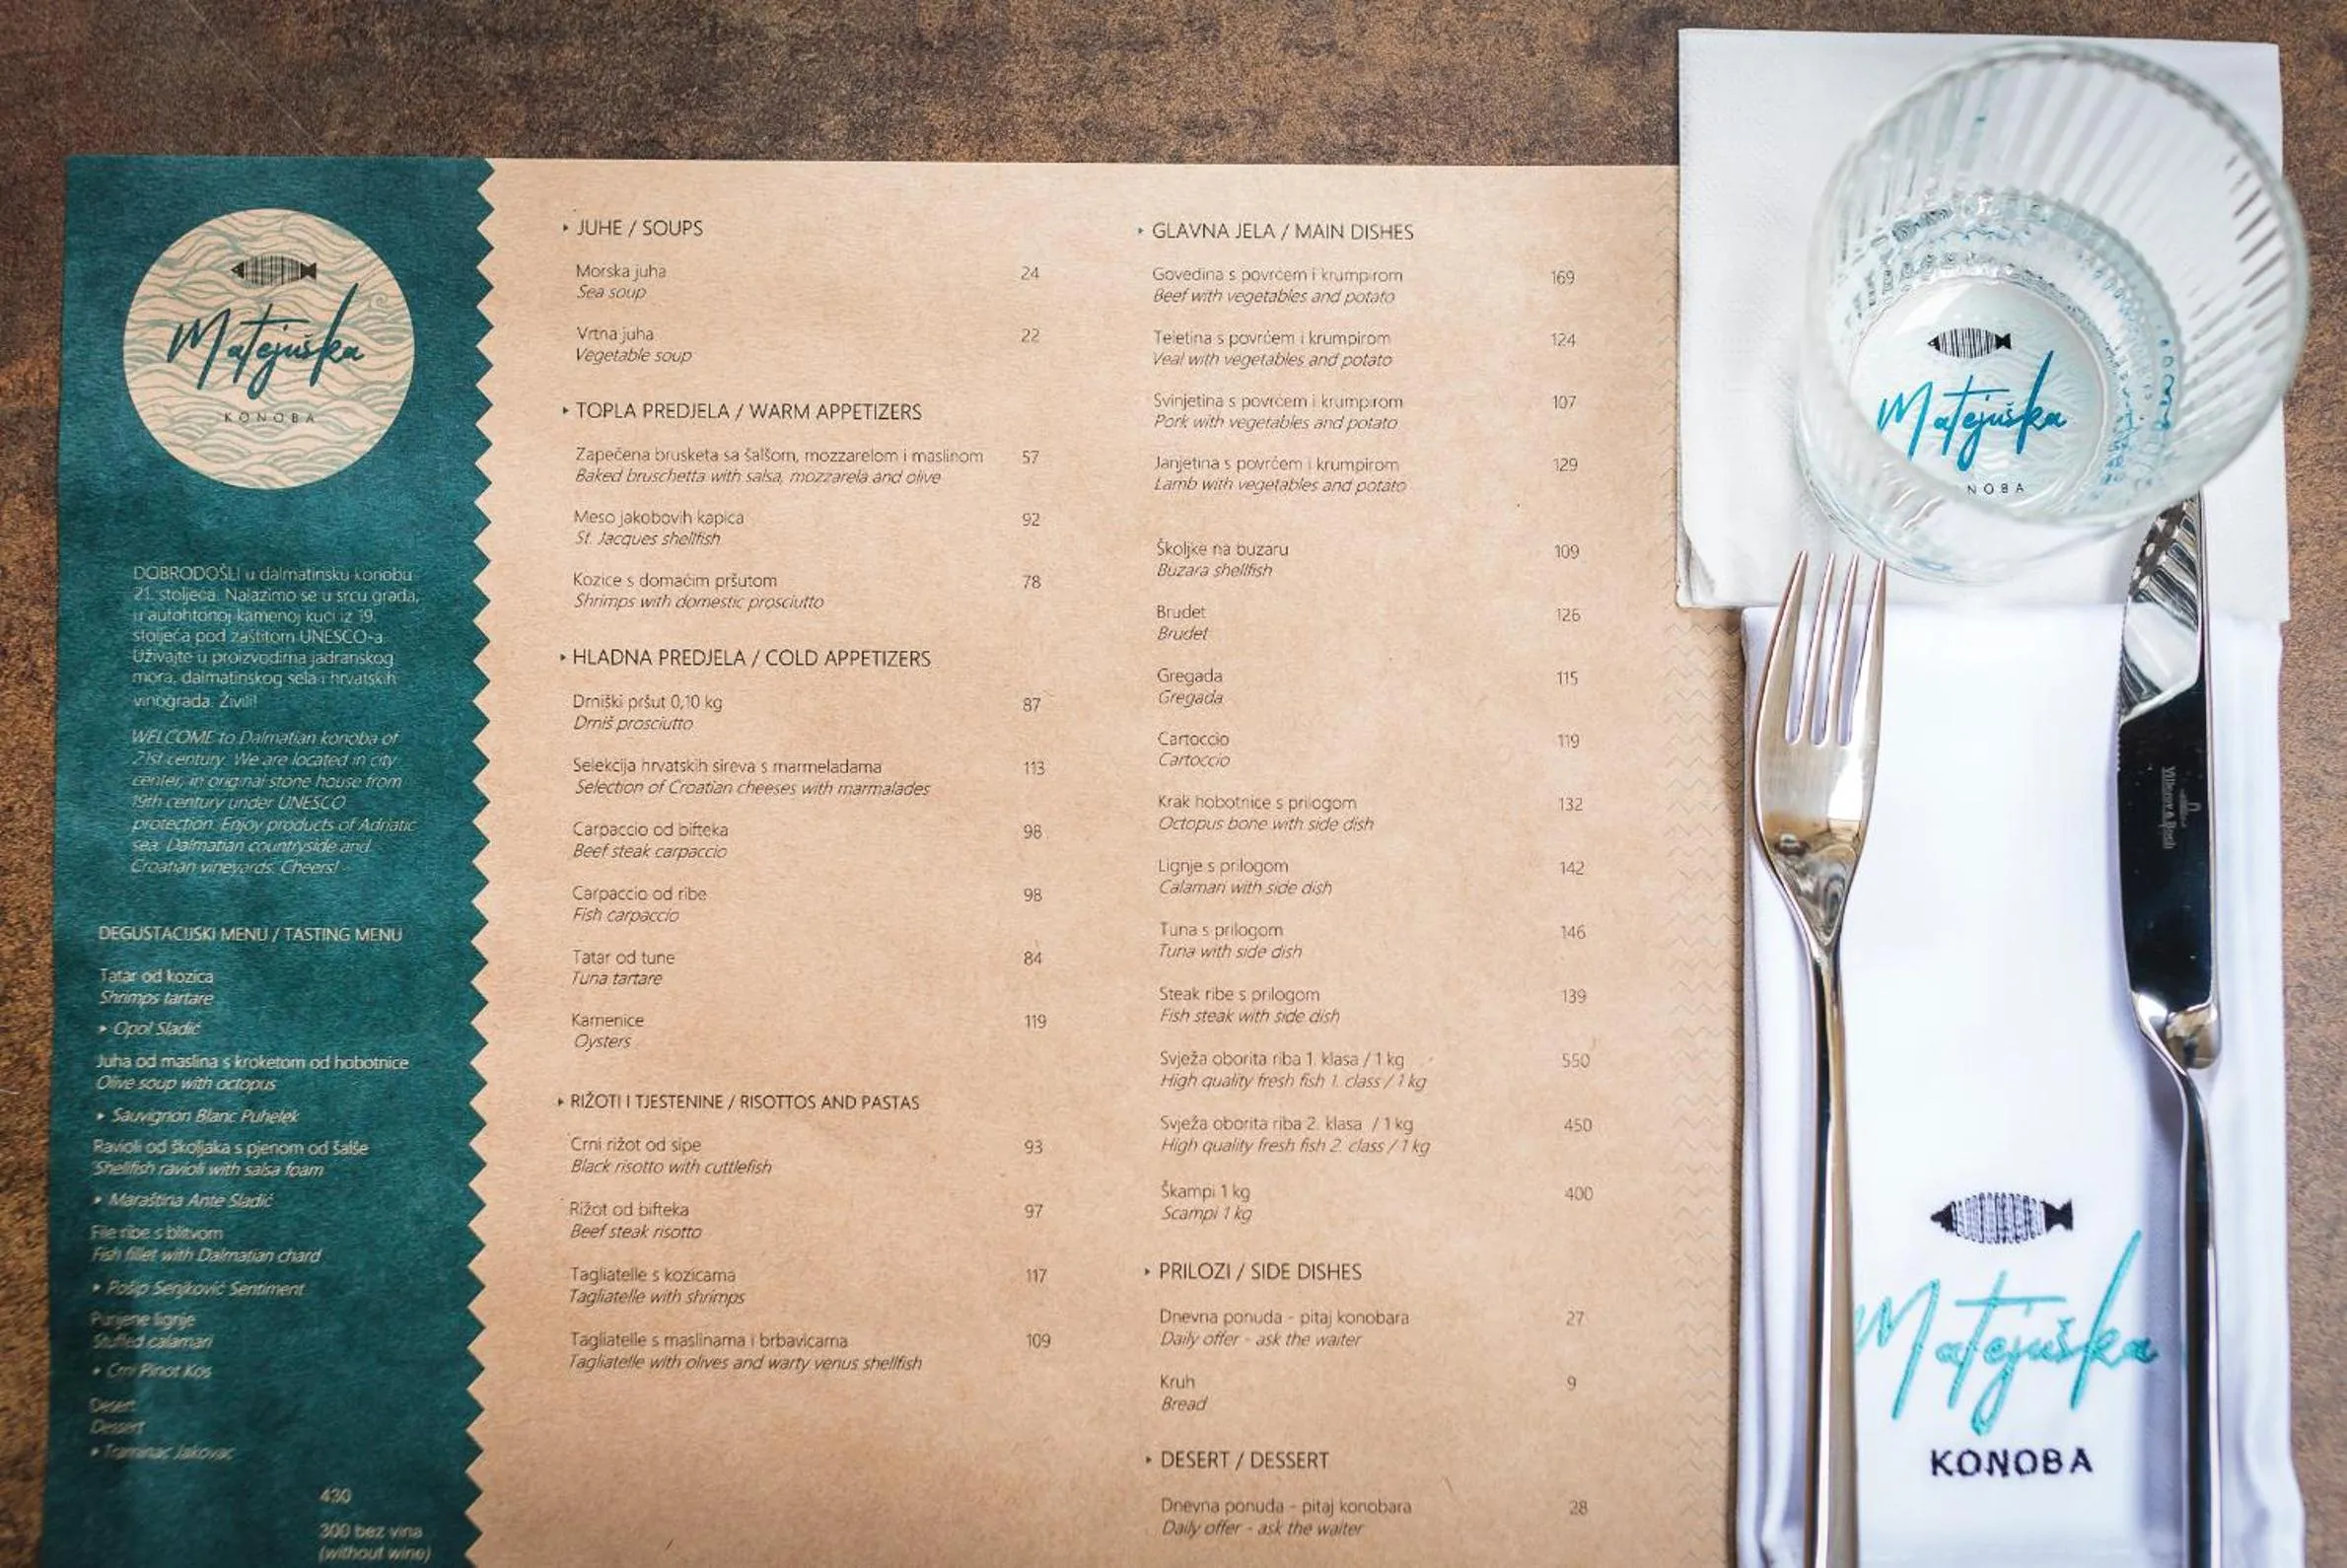 Matejuška
KONOBA
DOBRODOŠLI u dalmatinsku konobu
21. stoljeća. Nalazimo se u srcu grada,
u autohtonoj kamenoj kući iz 19.
stoljeća pod zaštitom UNESCO-a.
Uživajte u proizvodima jadranskog
mora, dalmatinskog sela i hrvatskih
vinograda. Živili!
WELCOME to Dalmatian konoba of
21st century. We are located in city
center, in original stone house from
19th century under UNESCO
protection. Enjoy products of Adriatic
sea, Dalmatian countryside and
Croatian vineyards. Cheers!
DEGUSTACIJSKI MENU / TASTING MENU
Tatar od kozica
Shrimps tartare
Opol Sladić
Juha od maslina s kroketom od hobotnice
Olive soup with octopus
Sauvignon Blanc Puhelek
Ravioli od školjaka s pjenom od šalše
Shellfish ravioli with salsa foam
Maraština Ante Sladić
File ribe s blitvom
Fish fillet with Dalmatian chard
Pošip Senjković Sentiment
Punjene lignje
Stuffed calamari
Crni Pinot Kos
Desert
Dessert
Traminac Jakovac
430
300 bez vina
(without wine)
JUHE / SOUPS
Morska juha 24
Sea soup
Vrtna juha 22
Vegetable soup
TOPLA PREDJELA / WARM APPETIZERS
Zapečena brusketa sa šalšom, mozzarelom i maslinom 57
Baked bruschetta with salsa, mozzarela and olive
Meso jakobovih kapica 92
St. Jacques shellfish
Kozice s domaćim pršutom 78
Shrimps with domestic prosciutto
HLADNA PREDJELA / COLD APPETIZERS
Drniški pršut 0,10 kg 87
Drniš prosciutto
Selekcija hrvatskih sireva s marmeladama 113
Selection of Croatian cheeses with marmalades
Carpaccio od bifteka 98
Beef steak carpaccio
Carpaccio od ribe 98
Fish carpaccio
Tatar od tune 84
Tuna tartare
Kamenice 119
Oysters
RIŽOTI I TJESTENINE / RISOTTOS AND PASTAS
Crni rižot od sipe 93
Black risotto with cuttlefish
Rižot od bifteka 97
Beef steak risotto
Tagliatelle s kozicama 117
Tagliatelle with shrimps
Tagliatelle s maslinama i brbavicama 109
Tagliatelle with olives and warty venus shellfish
GLAVNA JELA / MAIN DISHES
Govedina s povrćem i krumpirom 169
Beef with vegetables and potato
Teletina s povrćem i krumpirom 124
Veal with vegetables and potato
Svinjetina s povrćem i krumpirom 107
Pork with vegetables and potato
Janjetina s povrćem i krumpirom 129
Lamb with vegetables and potato
Školjke na buzaru 109
Buzara shellfish
Brudet 126
Brudet
Gregada 115
Gregada
Cartoccio 119
Cartoccio
Krak hobotnice s prilogom 132
Octopus bone with side dish
Lignje s prilogom 142
Calamari with side dish
Tuna s prilogom 146
Tuna with side dish
Steak ribe s prilogom 139
Fish steak with side dish
Svježa oborita riba 1. klasa / 1 kg 550
High quality fresh fish 1. class / 1 kg
Svježa oborita riba 2. klasa / 1 kg 450
High quality fresh fish 2. class / 1 kg
Škampi 1 kg 400
Scampi 1 kg
PRILOZI / SIDE DISHES
Dnevna ponuda - pitaj konobara 27
Daily offer - ask the waiter
Kruh 9
Bread
DESERT / DESSERT
Dnevna ponuda - pitaj konobara 28
Daily offer - ask the waiter
Matejuška
NOBA
Villeroy & Boch
Matejuška
KONOBA